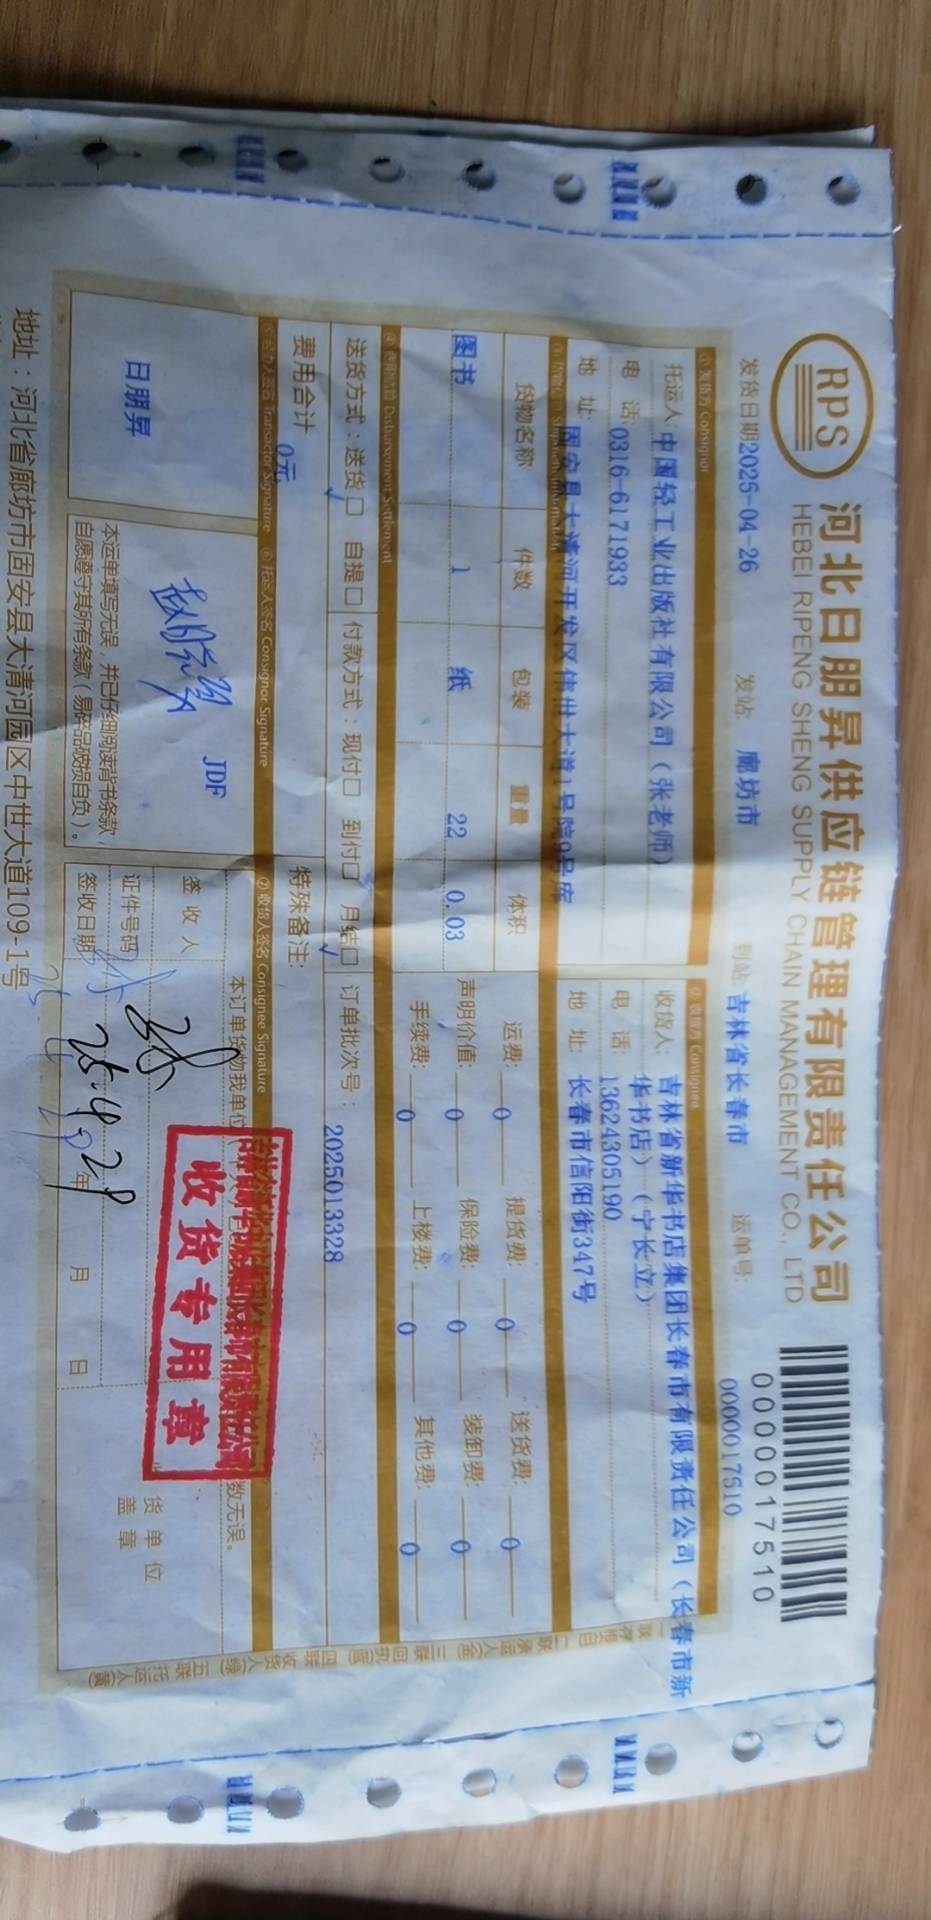 RPS
河北日朋昇供应链管理有限责任公司
HEBEI RIPENG SHENG SUPPLY CHAIN MANAGEMENT CO., LTD
0000017510
发货日期2025-04-26 发站: 廊坊市 到站: 吉林省长春市 运单号: 0000017510
① 发货方 Consignor
托运人:中国轻工业出版社有限公司（张老师）
电 话:0316-6171933
地 址:固安县大清河开发区伟世大道1号院9号库
② 收货方 Consignee
收货人: 吉林省新华书店集团长春市有限责任公司（长春市新
华书店）（宁长立）
电 话: 13624305190
地 址: 长春市信阳街347号
货物名称 件数 包装 重量 体积
图书 1 纸 22 0.03
运费: 0 提货费: 0 送货费: 0
声明价值: 0 保险费: 0 装卸费: 0
手续费: 0 上楼费: 0 其他费: 0
Disbursement Settlement
送货方式：送货□ 自提□ 付款方式：现付□ 到付□ 月结□ 订单批次号： 2025013328
费用合计 0元 特殊备注:
Transactor Signature ⑥ 托运人签名 Consignor Signature ⑦ 收货人签名 Consignee Signature
日朋昇
JDF
本运单填写无误，并已仔细阅读背书条款，
自愿遵守其所有条款（易碎品破损自负）。
本订单货物我单位
数无误。
签收人
证件号码
签收日期 25.4.29 年 月 日
货单位
盖章
收货专用章
地址：河北省廊坊市固安县大清河园区中世大道109-1号